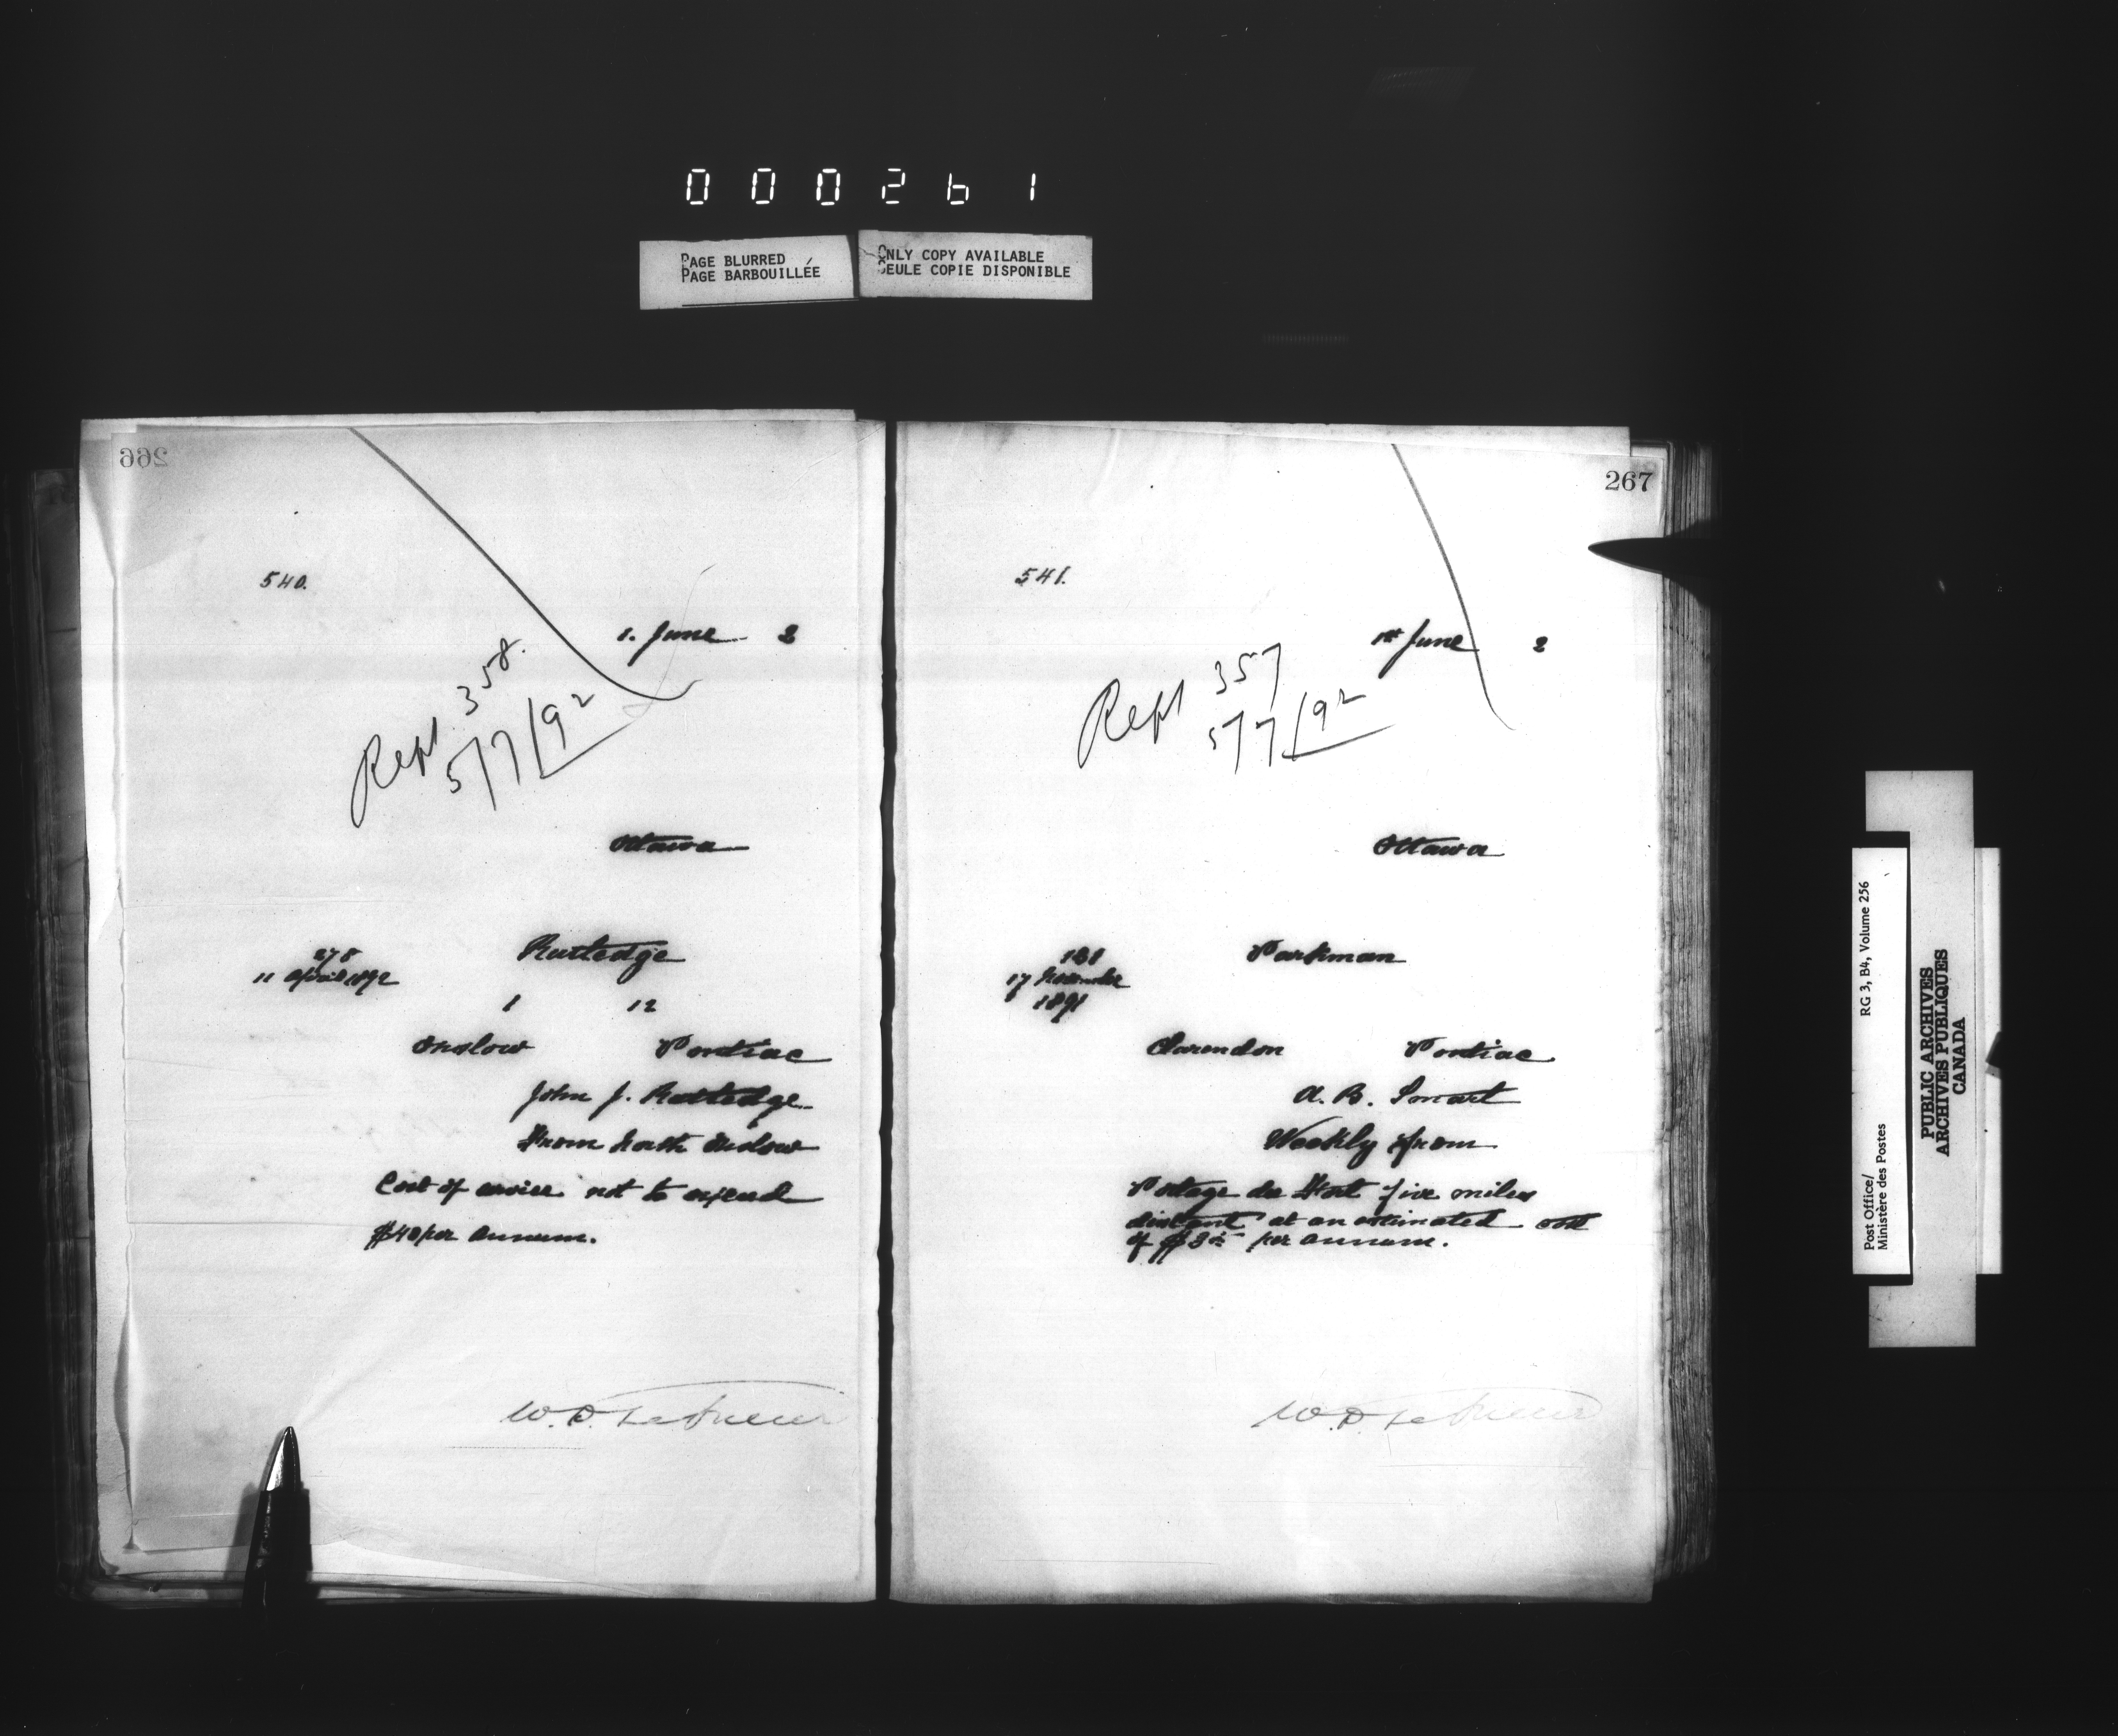 000261
PAGE BLURRED
PAGE BARBOUILLÉE
ONLY COPY AVAILABLE
SEULE COPIE DISPONIBLE
266
540.
1. June 2
Rept. 358.
5/7/92
Ottawa
Rutledge
278
11 April 1892
1 12
Onslow Pontiac
John J. Rutledge
From North Onslow
Cost of service not to exceed
$40 per annum.
W.D. LeSueur
267
541.
1st June 2
Rept 357
5/7/92
Ottawa
Parkman
181
17 November
1891
Clarendon Pontiac
A. B. Smart
Weekly from
Portage du Fort five miles
distant at an estimated cost
of per annum.
W.D. LeSueur
Post Office/
Ministère des Postes
RG 3, B4, Volume 256
PUBLIC ARCHIVES
ARCHIVES PUBLIQUES
CANADA